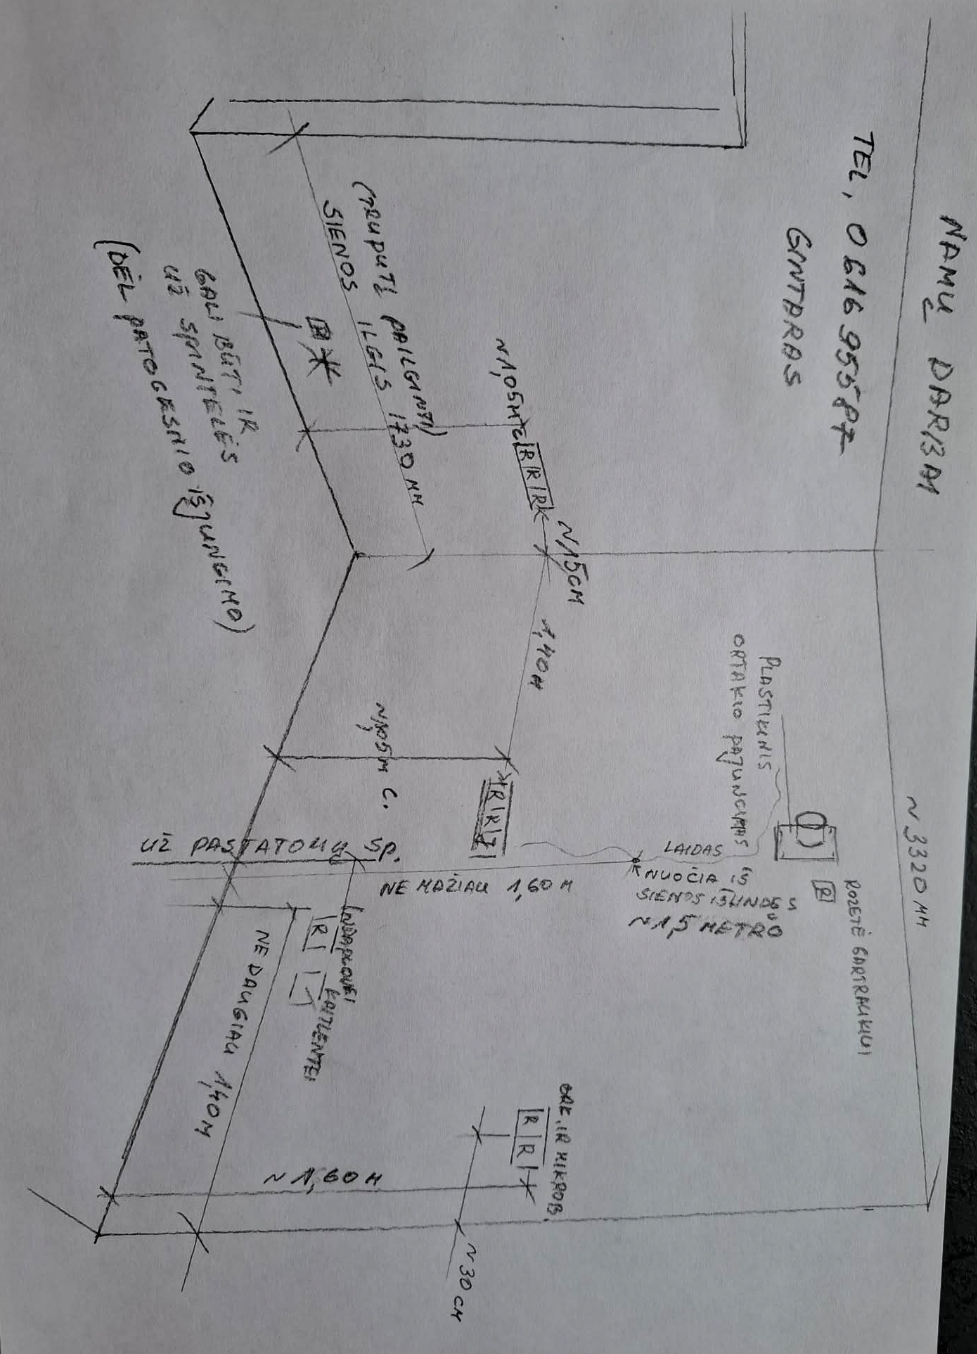 NAMŲ DARBAM
TEL, 061695587
GINTARAS
(TRUPUTĮ PAILGINTI)
SIENOS ILGIS 1730 MM
N1,05M C
R R R K
N15CM
1,40M
R
GALI BŪTI IR
UŽ SPINTELĖS
(DĖL PATOGESNIO IŠJUNGIMO)
PLASTIKINIS
ORTAKIO PAJUNGIMAS
~ 3320 MM
N1,05M C.
R R J
LAIDAS
NUOČIA IŠ
SIENOS IŠLINDĘS
~1,5 METRO
R
ROZETĖ GARTRAUKIUI
UŽ PASTATOMŲ SP.
NE MAŽIAU 1,60 M
INDAPLOVEI
R
KAITLENTEI
NE DAUGIAU 1,40M
ORK. IR MIKROB.
R R
~ 1,60 M
~ 30 CM